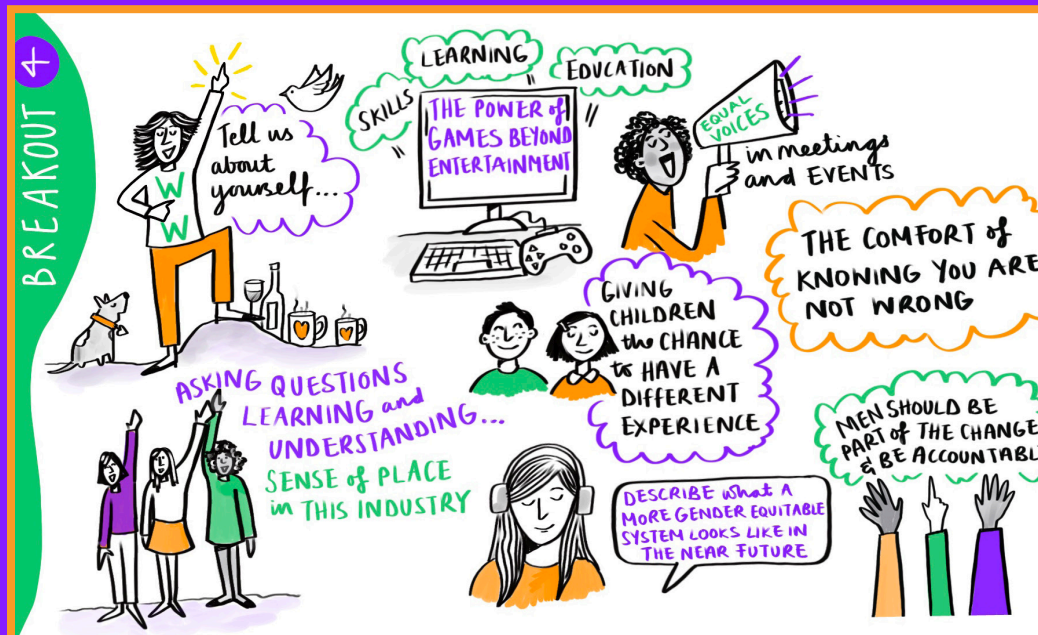 BREAKOUT 4
Tell us
about
yourself...
W
W
SKILLS
LEARNING
EDUCATION
THE POWER of
GAMES BEYOND
ENTERTAINMENT
EQUAL
VOICES
in meetings
and EVENTS
THE COMFORT of
KNONING YOU ARE
NOT WRONG
GIVING
CHILDREN
the CHANCE
to HAVE A
DIFFERENT
EXPERIENCE
ASKING QUESTIONS
LEARNING and
UNDERSTANDING...
SENSE of PLACE
in THIS INDUSTRY
DESCRIBE what A
MORE GENDER EQUITABLE
SYSTEM LOOKS LIKE IN
THE NEAR FUTURE
MEN SHOULD BE
PART of THE CHANGE
& BE ACCOUNTABL